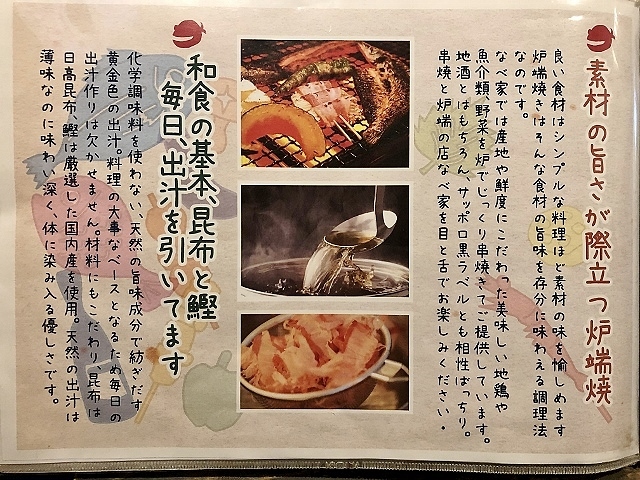 素材の旨さが際立つ炉端焼
良い食材はシンプルな料理ほど素材の味を愉しめます
炉端焼きはそんな食材の旨味を存分に味わえる調理法
なのです。
なべ家では産地や鮮度にこだわった美味しい地鶏や
魚介類、野菜を炉でじっくり串焼きでご提供しています。
地酒とはもちろん、サッポロ黒ラベルとも相性ばっちり。
串焼と炉端の店なべ家を目と舌でお楽しみください。
和食の基本、昆布と鰹
毎日、出汁を引いてます
化学調味料を使わない、天然の旨味成分で紡ぎだす
黄金色の出汁。料理の大事なベースとなるため毎日の
出汁作りは欠かせません。材料にもこだわり、昆布は
日高昆布、鰹は厳選した国内産を使用。天然の出汁は
薄味なのに味わい深く、体に染み入る優しさです。